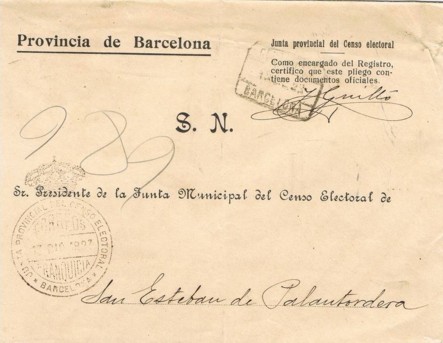 Provincia de Barcelona
Junta provincial del Censo electoral
Como encargado del Registro,
certifico que este pliego con-
tiene documentos oficiales.
BARCELONA
S. N.
Sr. Presidente de la Junta Municipal del Censo Electoral de
JUNTA PROVINCIAL DEL CENSO ELECTORAL
CORREOS
17 DIC 1907
FRANQUICIA
BARCELONA
San Esteban de Palautordera